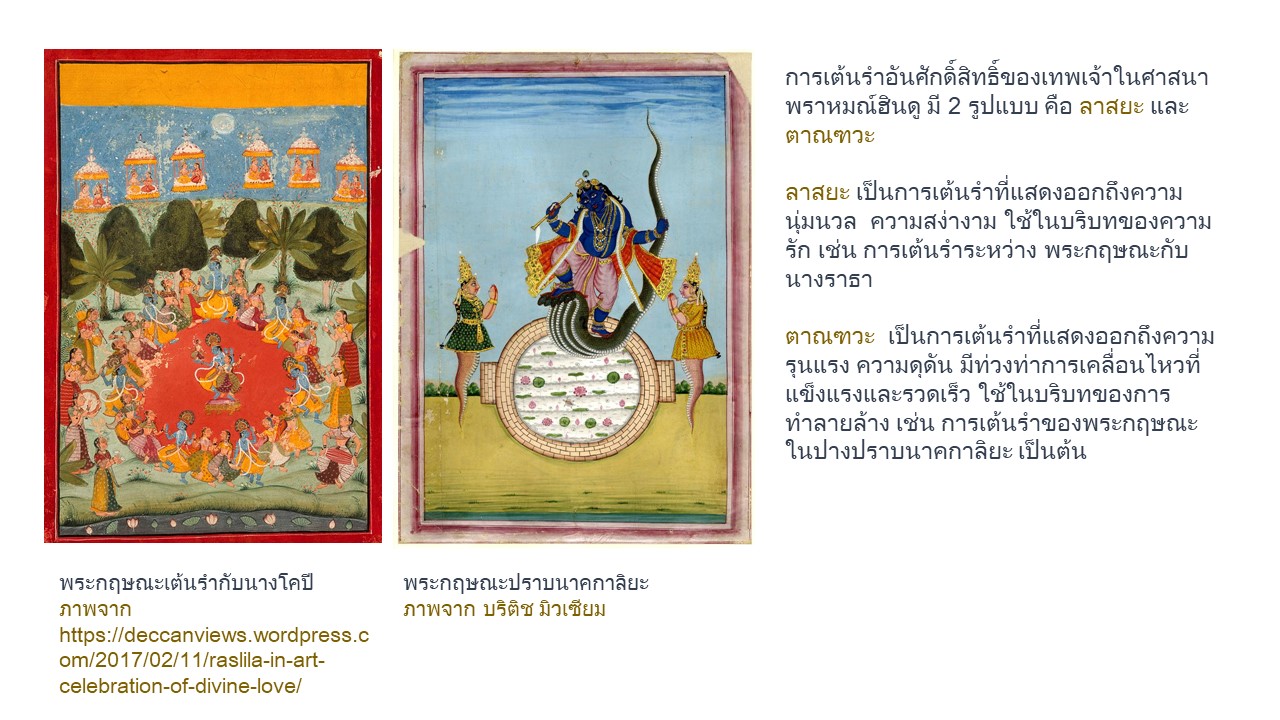 การเต้นรำอันศักดิ์สิทธิ์ของเทพเจ้าในศาสนา
พราหมณ์ฮินดู มี 2 รูปแบบ คือ ลาสยะ และ
ตาณฑวะ
ลาสยะ เป็นการเต้นรำที่แสดงออกถึงความ
นุ่มนวล ความสง่างาม ใช้ในบริบทของความ
รัก เช่น การเต้นรำระหว่าง พระกฤษณะกับ
นางราธา
ตาณฑวะ เป็นการเต้นรำที่แสดงออกถึงความ
รุนแรง ความดุดัน มีท่วงท่าการเคลื่อนไหวที่
แข็งแรงและรวดเร็ว ใช้ในบริบทของการ
ทำลายล้าง เช่น การเต้นรำของพระกฤษณะ
ในปางปราบนาคกาลิยะ เป็นต้น
พระกฤษณะเต้นรำกับนางโคปี
ภาพจาก
https://deccanviews.wordpress.c
om/2017/02/11/raslila-in-art-
celebration-of-divine-love/
พระกฤษณะปราบนาคกาลิยะ
ภาพจาก บริติช มิวเซียม